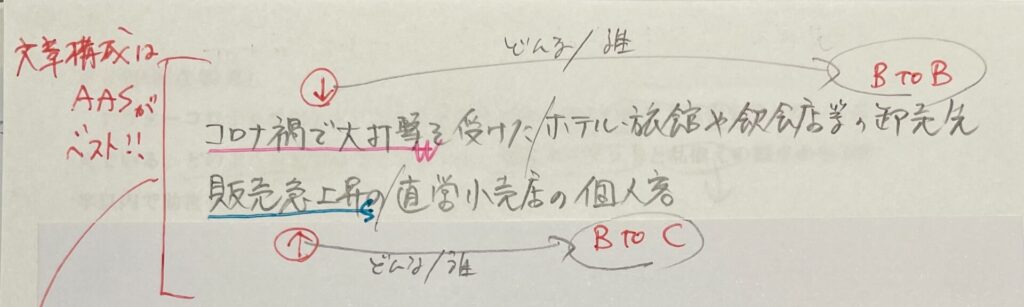 文章構成は
AASが
ベスト!!
どんな/誰
B to B
↓
コロナ禍で大打撃を受けた/ホテル・旅館や飲食店等の卸売先
販売急上昇の/直営小売店の個人客
↑
どんな/誰
B to C